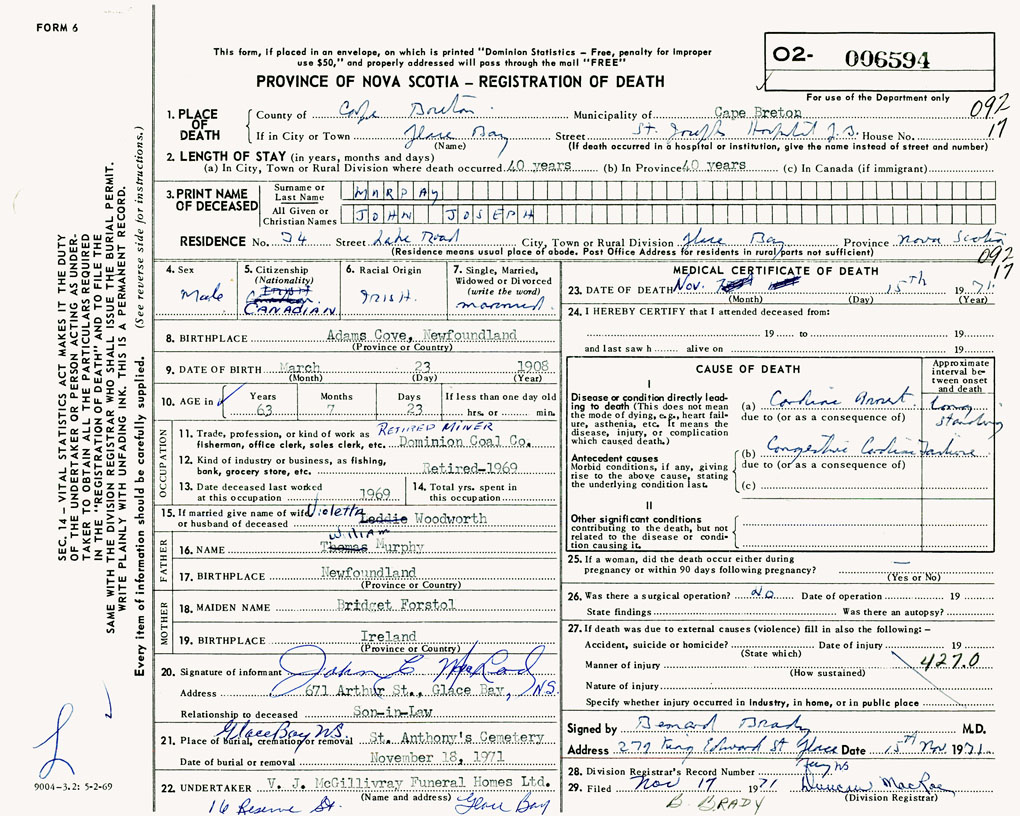 FORM 6
This form, if placed in an envelope, on which is printed "Dominion Statistics – Free, penalty for improper
use $50," and properly addressed will pass through the mail "FREE"
PROVINCE OF NOVA SCOTIA – REGISTRATION OF DEATH
02- 006594
For use of the Department only
092
17
1. PLACE OF DEATH
County of Cape Breton Municipality of Cape Breton
If in City or Town Glace Bay Street St. Joseph Hospital G.B. House No.
(Name) (If death occurred in a hospital or institution, give the name instead of street and number)
2. LENGTH OF STAY (in years, months and days)
(a) In City, Town or Rural Division where death occurred 40 years (b) In Province 40 years (c) In Canada (if immigrant)
3. PRINT NAME OF DECEASED
Surname or Last Name MARPAY
All Given or Christian Names JOHN JOSEPH
RESIDENCE No. 34 Street Lake Road City, Town or Rural Division Glace Bay Province Nova Scotia
(Residence means usual place of abode. Post Office Address for residents in rural parts not sufficient)
092
17
4. Sex
Male
5. Citizenship
(Nationality)
CANADIAN
6. Racial Origin
IRISH.
7. Single, Married,
Widowed or Divorced
(write the word)
married
8. BIRTHPLACE Adams Cove, Newfoundland
(Province or Country)
9. DATE OF BIRTH March 23 1908
(Month) (Day) (Year)
10. AGE in
Years Months Days If less than one day old
63 7 23 hrs. or min.
OCCUPATION
RETIRED MINER
11. Trade, profession, or kind of work as
fisherman, office clerk, sales clerk, etc. Dominion Coal Co.
12. Kind of industry or business, as fishing,
bank, grocery store, etc. Retired-1969
13. Date deceased last worked
at this occupation 1969
14. Total yrs. spent in
this occupation
15. If married give name of wife Violetta
or husband of deceased Leddie Woodworth
FATHER
William
16. NAME Thomas Murphy
17. BIRTHPLACE Newfoundland
(Province or Country)
MOTHER
18. MAIDEN NAME Bridget Forstol
19. BIRTHPLACE Ireland
(Province or Country)
20. Signature of informant John C MacLeod
Address 671 Arthur St., Glace Bay, NS.
Relationship to deceased Son-in-Law
Glace Bay NS.
21. Place of burial, cremation or removal St. Anthony's Cemetery
Date of burial or removal November 18, 1971
22. UNDERTAKER V. J. McGillivray Funeral Homes Ltd.
(Name and address)
16 Reserve St. Glace Bay
MEDICAL CERTIFICATE OF DEATH
23. DATE OF DEATH Nov. 15th 1971
(Month) (Day) (Year)
24. I HEREBY CERTIFY that I attended deceased from:
19 to 19
and last saw h alive on 19
CAUSE OF DEATH
Approximate interval between onset and death
I
Disease or condition directly leading to death (This does not mean the mode of dying, e.g., heart failure, asthenia, etc. It means the disease, injury, or complication which caused death.)
(a) Cardiac Arrest long standing
due to (or as a consequence of)
Antecedent causes
Morbid conditions, if any, giving rise to the above cause, stating the underlying condition last.
(b) Congestive Cardiac Failure
due to (or as a consequence of)
(c)
II
Other significant conditions
contributing to the death, but not related to the disease or condition causing it.
25. If a woman, did the death occur either during
pregnancy or within 90 days following pregnancy? —
(Yes or No)
26. Was there a surgical operation? No Date of operation 19
State findings Was there an autopsy?
27. If death was due to external causes (violence) fill in also the following: –
Accident, suicide or homicide? Date of injury 19
(State which)
427.0
Manner of injury
(How sustained)
Nature of injury
Specify whether injury occurred in Industry, in home, or in public place
Signed by Benard Brady M.D.
Address 279 King Edward St Glace Date 15th Nov. 1971
Bay NS
28. Division Registrar's Record Number
29. Filed Nov 17 1971 Duncan MacRae
(Division Registrar)
B. BRADY
SEC. 14 – VITAL STATISTICS ACT MAKES IT THE DUTY
OF THE UNDERTAKER OR PERSON ACTING AS UNDERTAKER
TO OBTAIN ALL THE PARTICULARS REQUIRED
IN THE "REGISTRATION OF DEATH" AND TO FILE THE
SAME WITH THE DIVISION REGISTRAR WHO SHALL ISSUE THE BURIAL PERMIT.
WRITE PLAINLY WITH UNFADING INK. THIS IS A PERMANENT RECORD.
Every item of information should be carefully supplied. (See reverse side for instructions.)
9004–3.2: 5-2-69